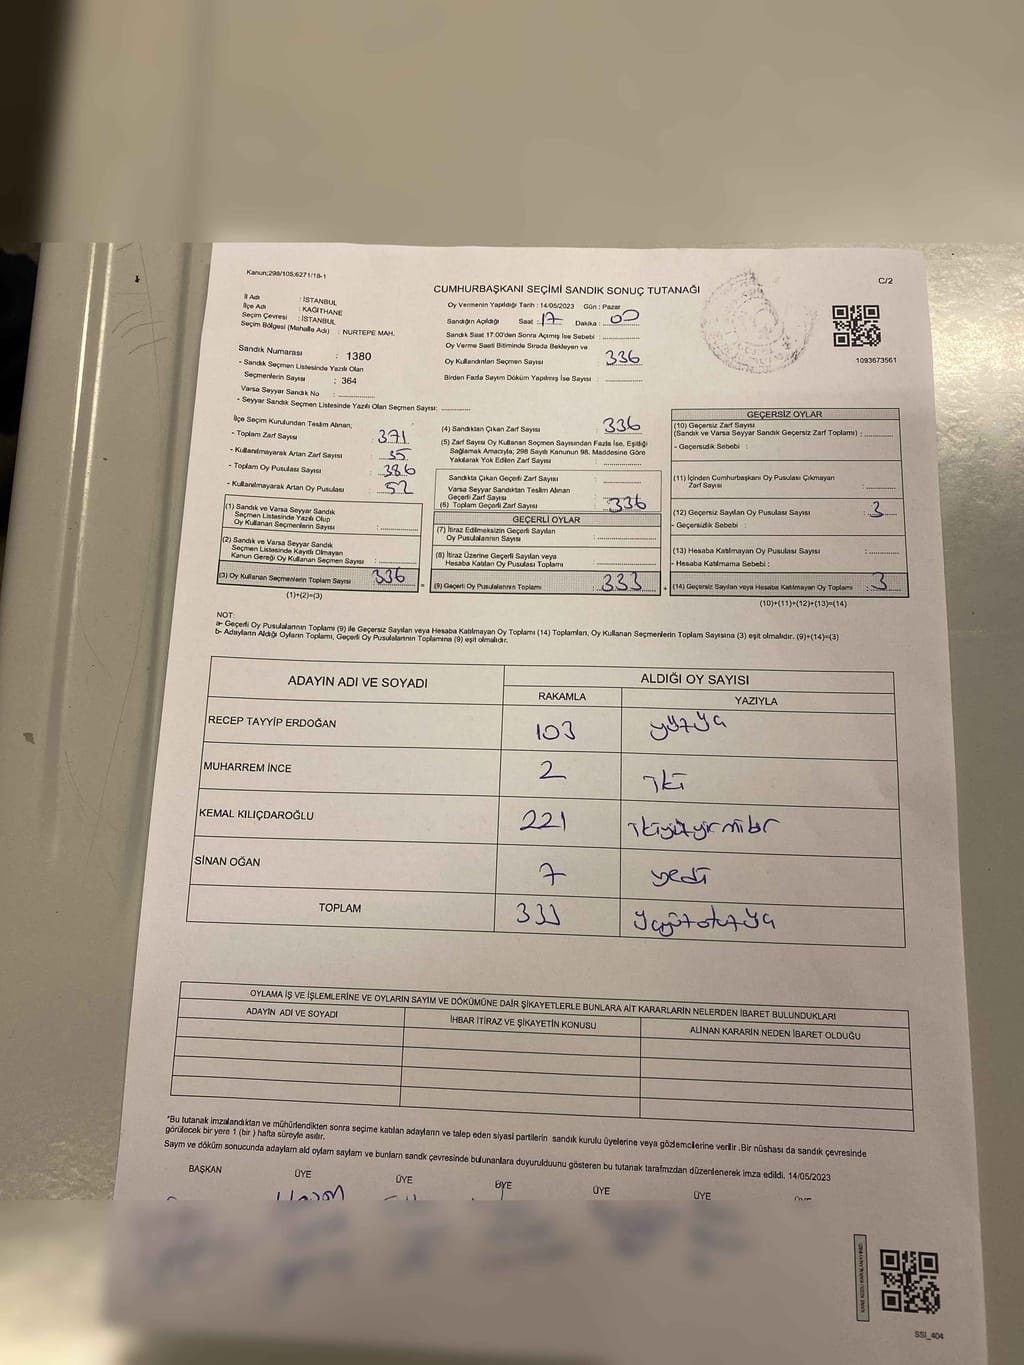 Kanun;298/105;6271/18-1
CUMHURBAŞKANI SEÇİMİ SANDIK SONUÇ TUTANAĞI
C/2
İl Adı : İSTANBUL
İlçe Adı : KAĞITHANE
Seçim Çevresi : İSTANBUL
Seçim Bölgesi (Mahalle Adı) : NURTEPE MAH.
Sandık Numarası : 1380
- Sandık Seçmen Listesinde Yazılı Olan
Seçmenlerin Sayısı : 364
Varsa Seyyar Sandık No : ..............
- Seyyar Sandık Seçmen Listesinde Yazılı Olan Seçmen Sayısı: ............
Oy Vermenin Yapıldığı Tarih : 14/05/2023 Gün : Pazar
Sandığın Açıldığı Saat : 17 Dakika : 00
Sandık Saat 17:00'den Sonra Açımış İse Sebebi : ..............
Oy Verme Saati Bitiminde Sırada Bekleyen ve
Oy Kullandırılan Seçmen Sayısı : 336
Birden Fazla Sayım Döküm Yapılmış İse Sayısı : ..............
1093673561
İlçe Seçim Kurulundan Teslim Alınan;
- Toplam Zarf Sayısı : 371
- Kullanılmayarak Artan Zarf Sayısı : 35
- Toplam Oy Pusulası Sayısı : 386
- Kullanılmayarak Artan Oy Pusulası : 52
(1) Sandık ve Varsa Seyyar Sandık
Seçmen Listesinde Yazılı Olup
Oy Kullanan Seçmenlerin Sayısı : ..............
(2) Sandık ve Varsa Seyyar Sandık
Seçmen Listesinde Kayıtlı Olmayan
Kanun Gereği Oy Kullanan Seçmen Sayısı : ..............
(3) Oy Kullanan Seçmenlerin Toplam Sayısı 336
(1)+(2)=(3)
=
(4) Sandıktan Çıkan Zarf Sayısı : 336
(5) Zarf Sayısı Oy Kullanan Seçmen Sayısından Fazla İse, Eşitliği
Sağlamak Amacıyla; 298 Sayılı Kanunun 98. Maddesine Göre
Yakılarak Yok Edilen Zarf Sayısı : ..............
Sandıkta Çıkan Geçerli Zarf Sayısı : ..............
Varsa Seyyar Sandıktan Teslim Alınan
Geçerli Zarf Sayısı : ..............
(6) Toplam Geçerli Zarf Sayısı : 336
GEÇERLİ OYLAR
(7) İtiraz Edilmeksizin Geçerli Sayılan
Oy Pusulasının Sayısı : ..............
(8) İtiraz Üzerine Geçerli Sayılan veya
Hesaba Katılan Oy Pusulası Toplamı : ..............
(9) Geçerli Oy Pusulalarının Toplamı : 333
+
GEÇERSİZ OYLAR
(10) Geçersiz Zarf Sayısı
(Sandık ve Varsa Seyyar Sandık Geçersiz Zarf Toplamı) : ..............
- Geçersizlik Sebebi :
(11) İçinden Cumhurbaşkanı Oy Pusulası Çıkmayan
Zarf Sayısı : ..............
(12) Geçersiz Sayılan Oy Pusulası Sayısı : 3
- Geçersizlik Sebebi :
(13) Hesaba Katılmayan Oy Pusulası Sayısı : ..............
- Hesaba Katılmama Sebebi :
(14) Geçersiz Sayılan veya Hesaba Katılmayan Oy Toplamı : 3
(10)+(11)+(12)+(13)=(14)
NOT:
a- Geçerli Oy Pusulalarının Toplamı (9) ile Geçersiz Sayılan veya Hesaba Katılmayan Oy Toplamı (14) Toplamları, Oy Kullanan Seçmenlerin Toplam Sayısına (3) eşit olmalıdır. (9)+(14)=(3)
b- Adayların Aldığı Oyların Toplamı, Geçerli Oy Pusulalarının Toplamına (9) eşit olmalıdır.
ADAYIN ADI VE SOYADI ALDIĞI OY SAYISI
RAKAMLA YAZIYLA
RECEP TAYYİP ERDOĞAN 103
MUHARREM İNCE 2 iki
KEMAL KILIÇDAROĞLU 221 ikiyüzyirmibir
SİNAN OĞAN 7 yedi
TOPLAM 333
OYLAMA İŞ VE İŞLEMLERİNE VE OYLARIN SAYIM VE DÖKÜMÜNE DAİR ŞİKAYETLERLE BUNLARA AİT KARARLARIN NELERDEN İBARET BULUNDUKLARI
ADAYIN ADI VE SOYADI İHBAR İTİRAZ VE ŞİKAYETİN KONUSU ALINAN KARARIN NEDEN İBARET OLDUĞU
*Bu tutanak imzalandıktan ve mühürlendikten sonra seçime katılan adayların ve talep eden siyasi partilerin sandık kurulu üyelerine veya gözlemcilerine verilir .Bir nüshası da sandık çevresinde
görülecek bir yere 1 (bir ) hafta süreyle asılır.
Sayım ve döküm sonucunda adayların aldı oyların sayları ve bunların sandk çevresinde bulunanlara duyurulduunu gösteren bu tutanak tarafmzdan düzenlenerek imza edildi. 14/05/2023
BAŞKAN ÜYE ÜYE ÜYE ÜYE ÜYE
SSİ_404